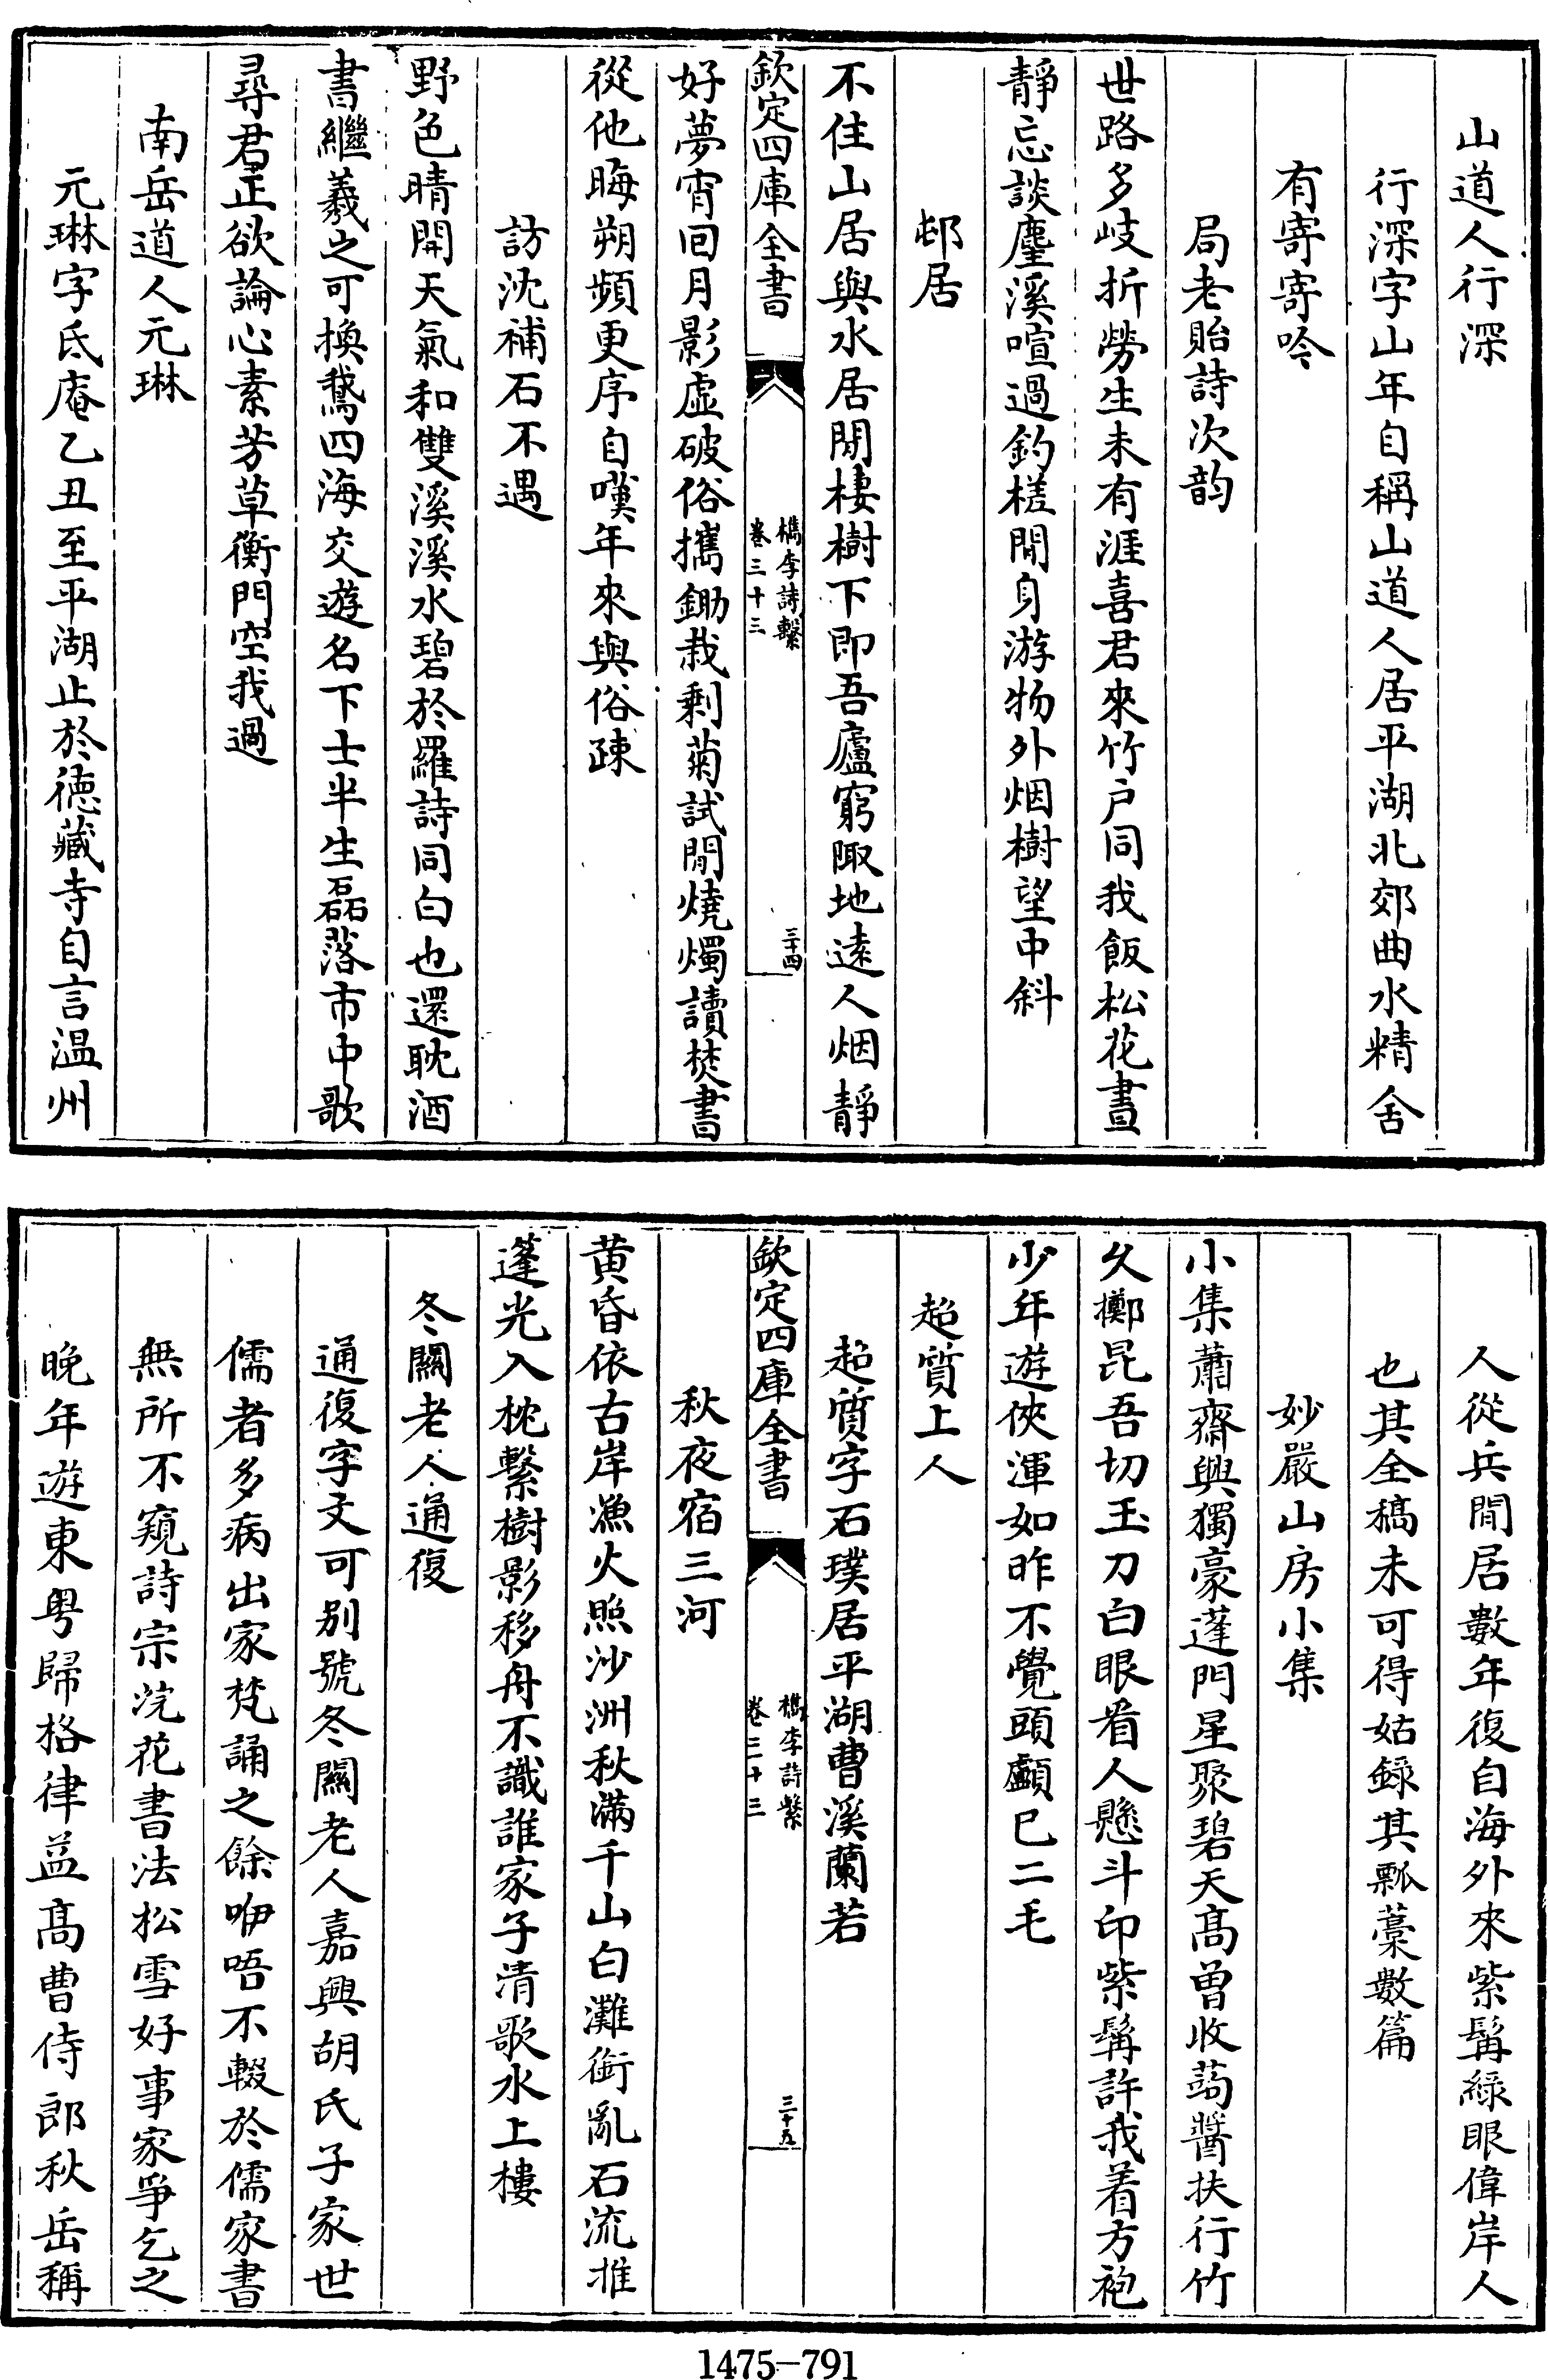 山道人行深
行深字山年自稱山道人居平湖北郊曲水精舍
有寄寄吟
局老貽詩次韵
世路多岐折勞生未有涯喜君來竹户同我飯松花晝
靜忘談麈溪喧過釣槎閒身游物外烟樹望中斜
邨居
不住山居與水居閒棲樹下即吾廬窮陬地逺人烟靜
欽定四庫全書
檇李詩繫
卷三十三
三十四
好夢宵回月影虚破俗攜鋤栽剩菊試閒燒燭讀焚書
從他晦朔頻更序自嘆年來與俗疎
訪沈補石不遇
野色晴開天氣和雙溪溪水碧於羅詩同白也還耽酒
書繼羲之可換鵞四海交遊名下士半生磊落市中歌
尋君正欲論心素芳草衡門空我過
南岳道人元琳
元琳字氐庵乙丑至平湖止於徳藏寺自言温州
人從兵閒居數年復自海外來紫髯綠眼偉岸人
也其全稿未可得姑録其瓢藁數篇
妙嚴山房小集
小集蕭齋興獨豪蓬門星聚碧天髙曾收蒟醬扶行竹
久擲昆吾切玉刀白眼看人懸斗印紫髯許我着方袍
少年遊俠渾如昨不覺頭顱已二毛
超質上人
超質字石璞居平湖曹溪蘭若
欽定四庫全書
檇李詩繫
卷三十三
三十五
秋夜宿三河
黄昏依古岸漁火照沙洲秋滿千山白灘銜亂石流推
蓬光入枕繫樹影移舟不識誰家子清歌水上樓
冬關老人通復
通復字文可别號冬關老人嘉興胡氏子家世
儒者多病出家梵誦之餘咿唔不輟於儒家書
無所不窺詩宗浣花書法松雪好事家爭乞之
晚年遊東粤歸格律益髙曹侍郎秋岳稱
1475-791